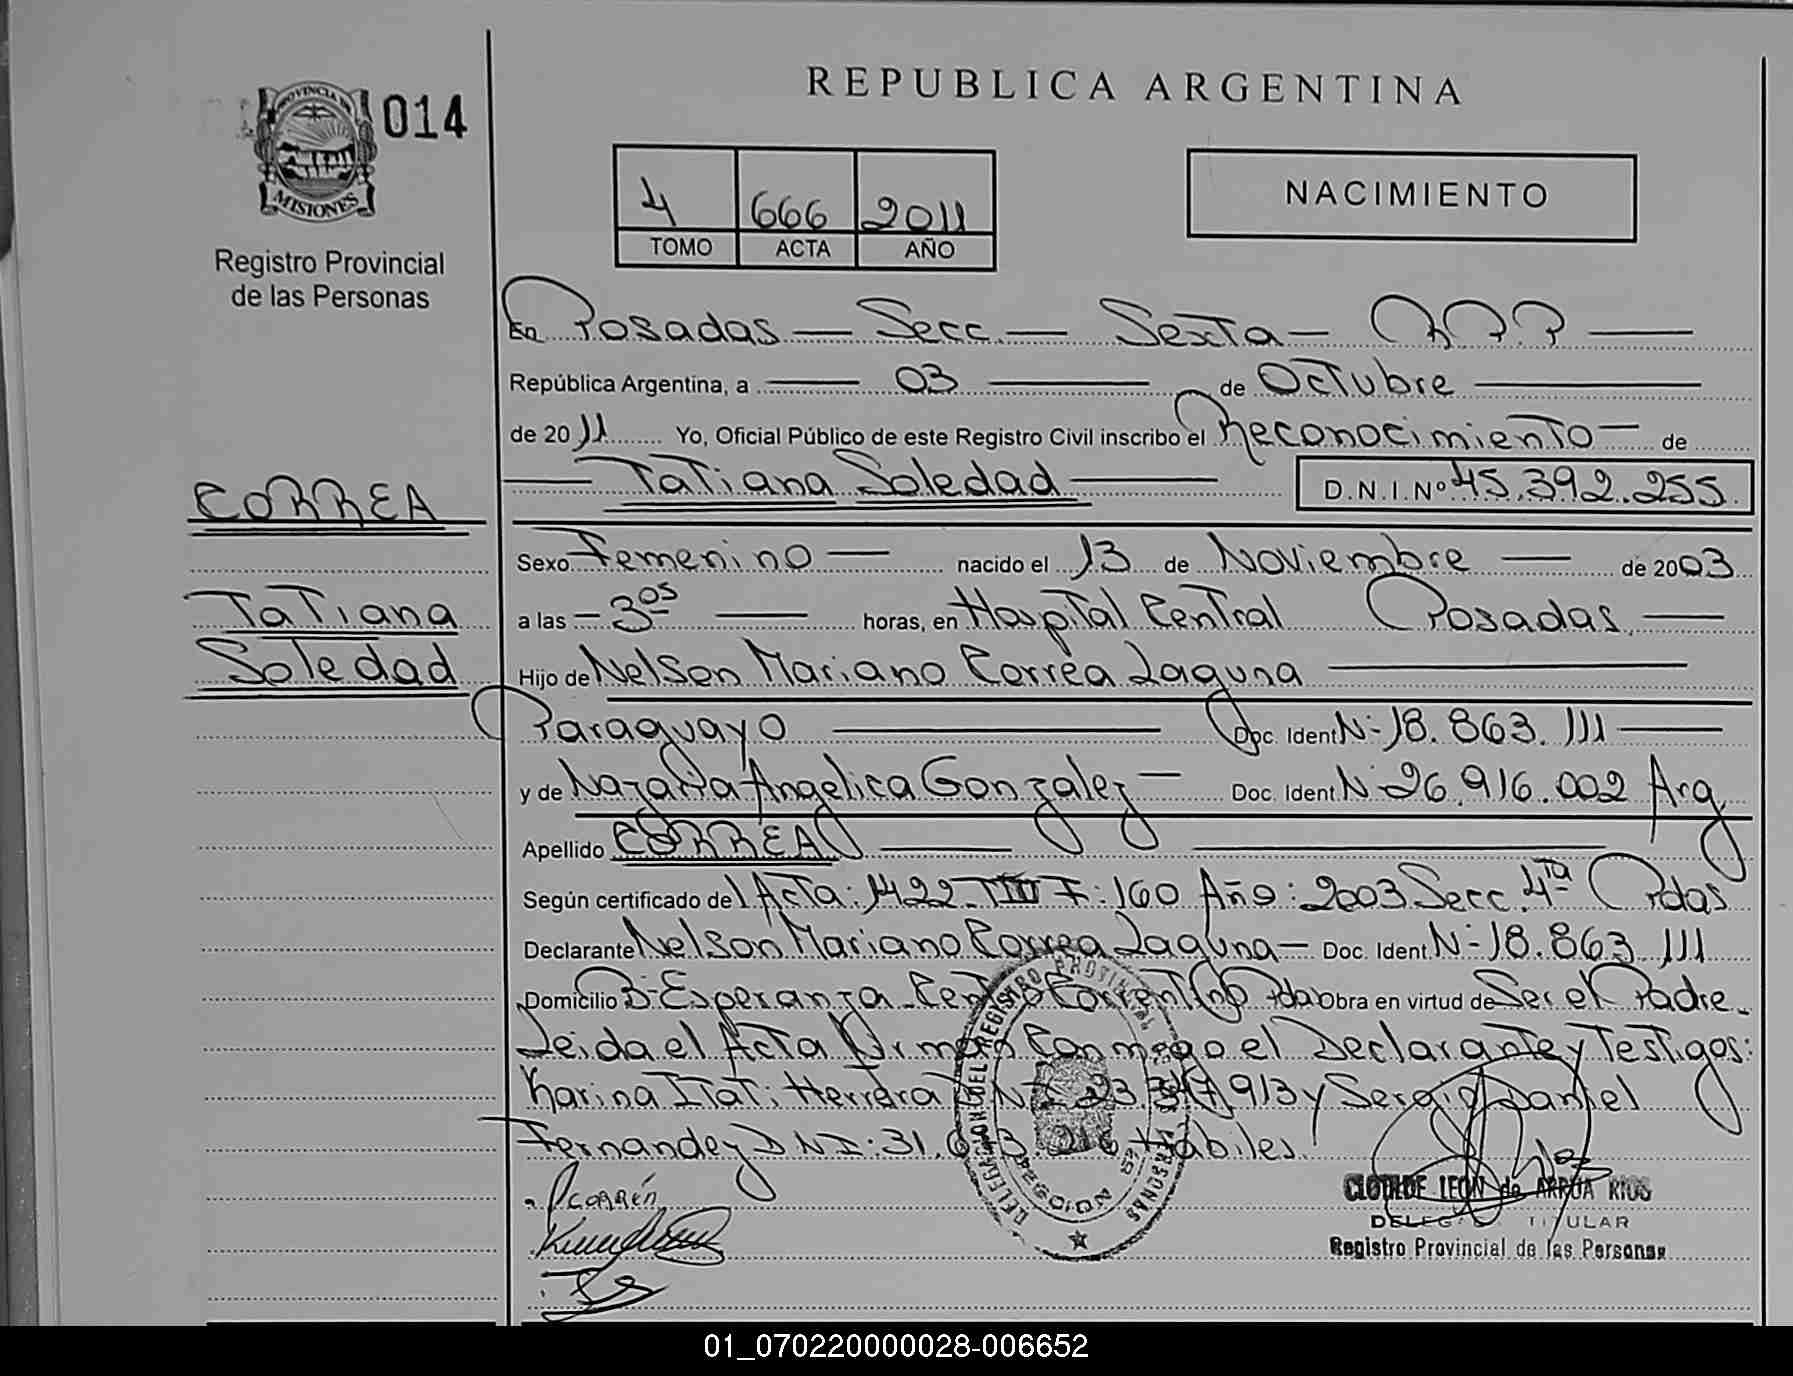 PROVINCIA DE
MISIONES
014
Registro Provincial
de las Personas
CORREA
Tatiana
Soledad
REPUBLICA ARGENTINA
4 666 2011
TOMO ACTA AÑO
NACIMIENTO
En Posadas — Secc. — Sexta — R.P.P —
República Argentina, a — 03 — de Octubre —
de 2011 Yo, Oficial Público de este Registro Civil inscribo el Reconocimiento — de
— Tatiana Soledad — D.N.I.Nº 45.392.255.
Sexo Femenino — nacido el 13 de Noviembre — de 2003
a las — 3 05 — horas, en Hospital Central Posadas. —
Hijo de Nelson Mariano Correa Laguna —
Paraguayo — Doc. Ident. Nº 18.863.111 —
y de Nazaria Angelica Gonzalez — Doc. Ident. Nº 26.916.002 Arg
Apellido CORREA —
Según certificado de 1 Acta: 1422 - T III F: 160 Año: 2003 Secc. 4ta Pdas
Declarante Nelson Mariano Correa Laguna — Doc. Ident. Nº 18.863.111
Domicilio Bº Esperanza Centro Correntino Pdas Obra en virtud de Ser el Padre.
Leida el Acta firman conmigo el Declarante y Testigos:
Karina Itati Herrera 913 y Sergio Daniel
Fernandez DNI: 31. Habiles.
CORREA
DELEGACION DEL REGISTRO PROVINCIAL DE LAS PERSONAS
CLOTILDE LEON de ARRUA RIOS
DELEGADA TITULAR
Registro Provincial de las Personas
01_070220000028-006652